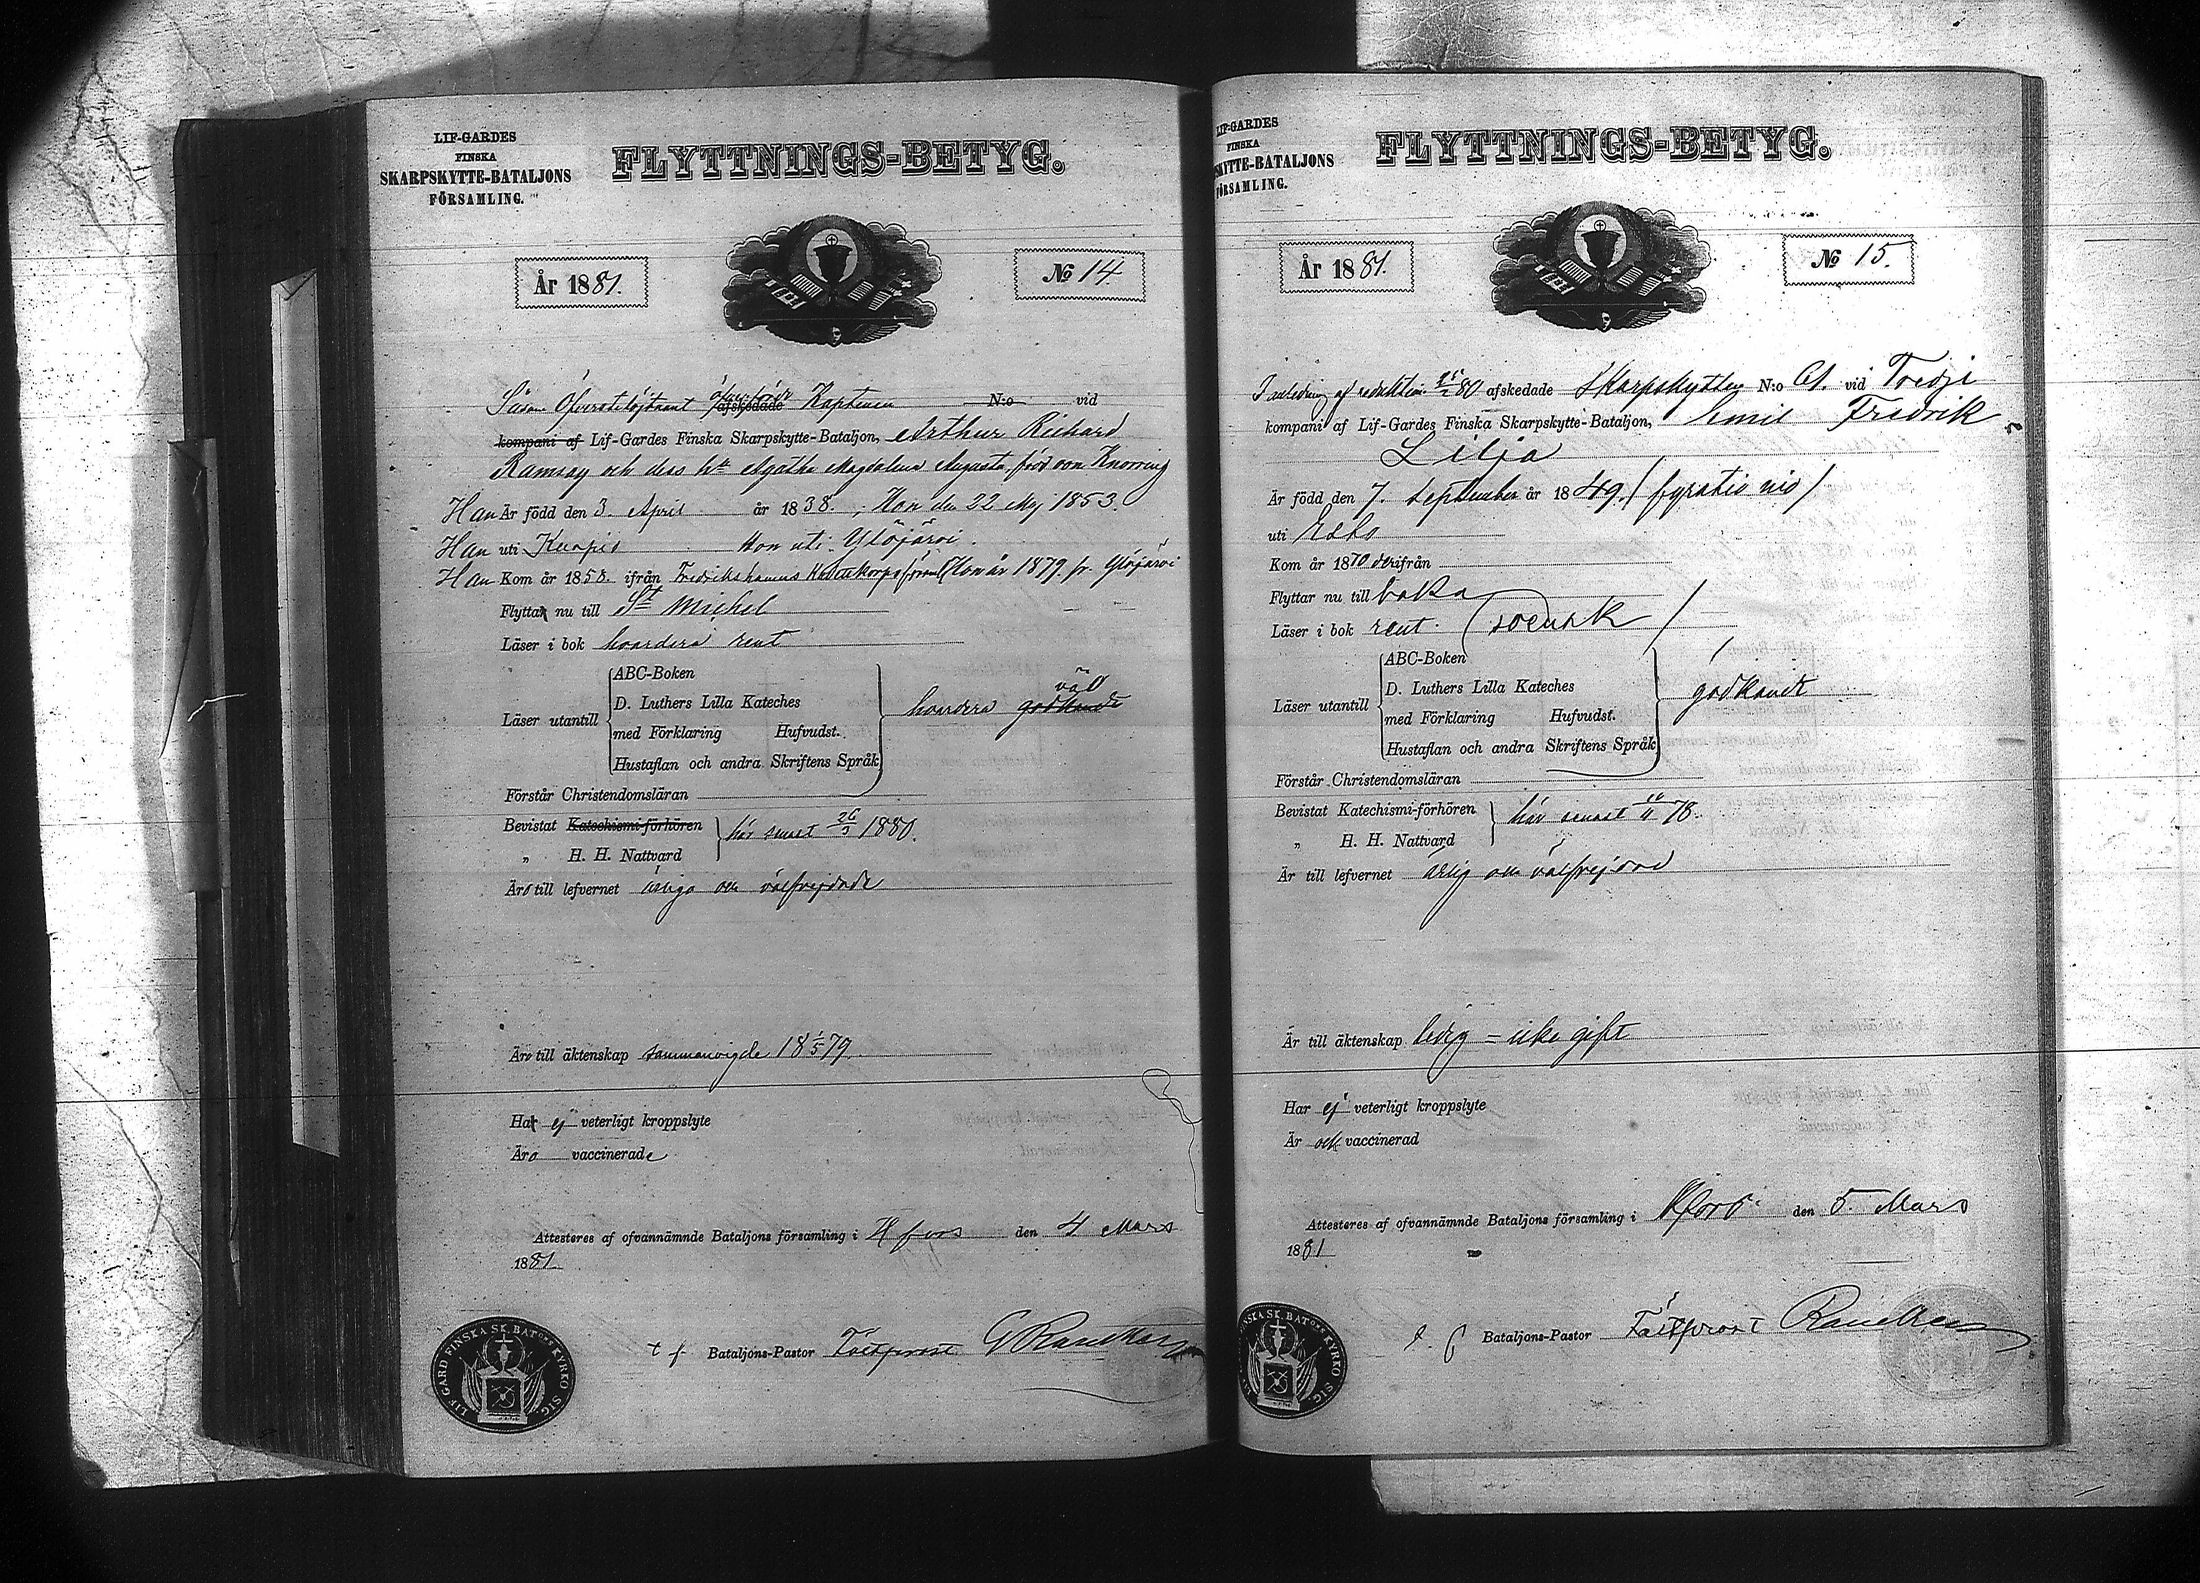 LIF-GARDES
FINSKA
SKARPSKYTTE-BATALJONS
FÖRSAMLING.
FLYTTNINGS-BETYG.
År 1881.
№ 14.
Såsom Öfverstelöjtnant afskedade Kaptenen N:o vid
kompani af Lif-Gardes Finska Skarpskytte-Bataljon, Arthur Richard
Ramsay och dess h:u Agatha Magdalena Augusta, född von Knorring
Han Är född den 3. April år 1838. ; Hon den 22 Maj 1853.
Han uti Kuopio Hon uti Ylöjärvi.
Han Kom år 1858. ifrån Fredrikshamns Kadettkorps förs. Hon år 1879. fr. Ylöjärvi
Flytta nu till St Michel
Läser i bok hvardera rent
Läser utantill
ABC-Boken
D. Luthers Lilla Kateches
med Förklaring Hufvudst.
Hustaflan och andra Skriftens Språk
hvardera godkände väl
Förstår Christendomsläran
Bevistat Katechismi-förhören
„ H. H. Nattvard
här senast 26/3 1880.
Äro till lefvernet ärliga och välfrejdade
Äro till äktenskap sammanvigde 18 1/5 79.
Ha ej veterligt kroppslyte
Äro vaccinerade
Attesteres af ofvannämnde Bataljons församling i Hfors den 4 Mars
1881.
t f Bataljons-Pastor Fältprost
LIF GARD FINSKA SK. BATONS KYRKO SIG.
LIF-GARDES
FINSKA
SKYTTE-BATALJONS
FÖRSAMLING.
FLYTTNINGS-BETYG.
År 1881.
№ 15.
I anledning af reduktion 80 afskedade Skarpskytten N:o 61. vid Tredje
kompani af Lif-Gardes Finska Skarpskytte-Bataljon, Emil Fredrik
Lilja
Är född den 7. September år 1849. (fyratio nio)
uti Esbo
Kom år 1870 derifrån
Flyttar nu till
Läser i bok rent. (svensk)
Läser utantill
ABC-Boken
D. Luthers Lilla Kateches
med Förklaring Hufvudst.
Hustaflan och andra Skriftens Språk
godkändt
Förstår Christendomsläran
Bevistat Katechismi-förhören
„ H. H. Nattvard
här senast 78.
Är till lefvernet ärlig och välfrejdad
Är till äktenskap ledig = icke gift
Har ej veterligt kroppslyte
Är och vaccinerad
Attesteres af ofvannämnde Bataljons församling i Hfors den 5. Mars
1881
t. f Bataljons-Pastor Fältprost
SKA SK. BATONS KYRKO SIG.